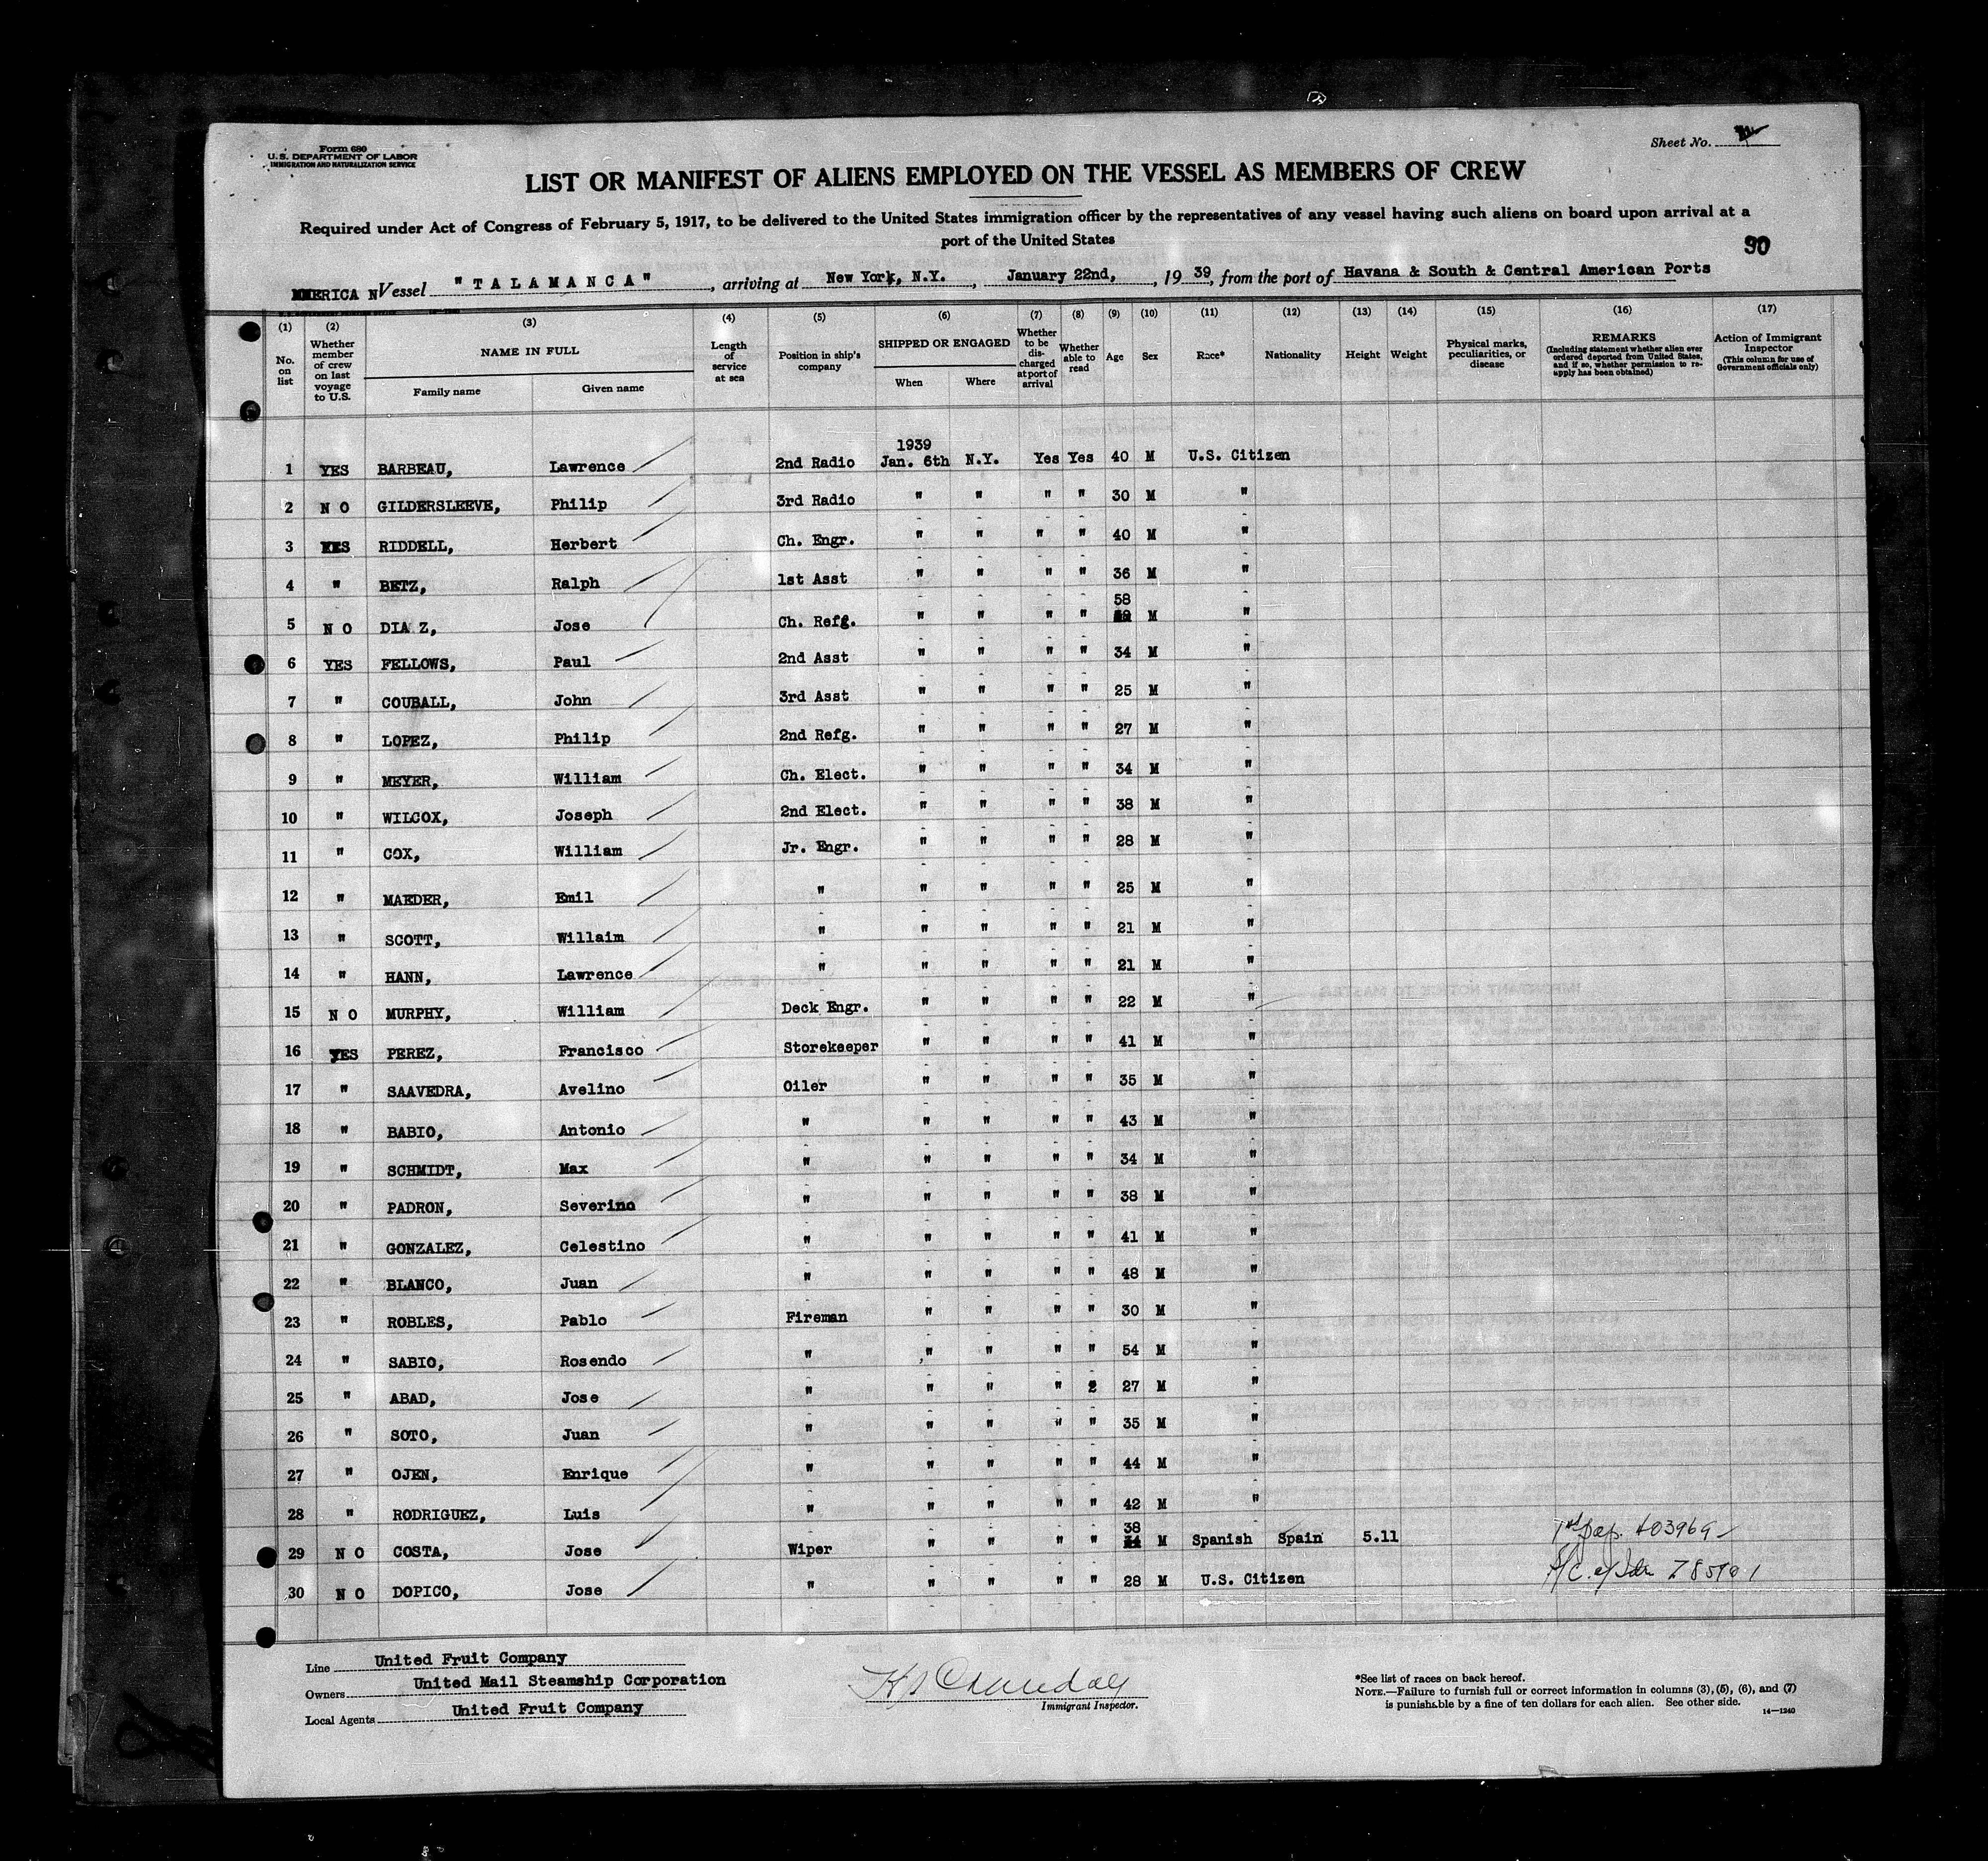 Form 680
U. S. DEPARTMENT OF LABOR
IMMIGRATION AND NATURALIZATION SERVICE
Sheet No.
LIST OR MANIFEST OF ALIENS EMPLOYED ON THE VESSEL AS MEMBERS OF CREW
Required under Act of Congress of February 5, 1917, to be delivered to the United States immigration officer by the representatives of any vessel having such aliens on board upon arrival at a
port of the United States
90
AMERICAN Vessel "TALAMANCA", arriving at New York, N.Y., January 22nd, 1939, from the port of Havana & South & Central American Ports
(1) (2) (3) (4) (5) (6) (7) (8) (9) (10) (11) (12) (13) (14) (15) (16) (17)
No. on list
Whether member of crew on last voyage to U.S.
NAME IN FULL
Family name
Given name
Length of service at sea
Position in ship's company
SHIPPED OR ENGAGED
When
Where
Whether to be discharged at port of arrival
Whether able to read
Age
Sex
Race*
Nationality
Height
Weight
Physical marks, peculiarities, or disease
REMARKS
(Including statement whether alien ever ordered deported from United States, and if so, whether permission to reapply has been obtained)
Action of Immigrant Inspector
(This column for use of Government officials only)
1939
1 YES BARBEAU, Lawrence 2nd Radio Jan. 6th N.Y. Yes Yes 40 M U.S. Citizen
2 N O GILDERSLEEVE, Philip 3rd Radio " " " " 30 M "
3 YES RIDDELL, Herbert Ch. Engr. " " " " 40 M "
4 " BETZ, Ralph 1st Asst " " " " 36 M "
5 N O DIA Z, Jose Ch. Refg. " " " " 58 M "
6 YES FELLOWS, Paul 2nd Asst " " " " 34 M "
7 " COUBALL, John 3rd Asst " " " " 25 M "
8 " LOPEZ, Philip 2nd Refg. " " " " 27 M "
9 " MEYER, William Ch. Elect. " " " " 34 M "
10 " WILCOX, Joseph 2nd Elect. " " " " 38 M "
11 " COX, William Jr. Engr. " " " " 28 M "
12 " MAEDER, Emil " " " " " 25 M "
13 " SCOTT, Willaim " " " " " 21 M "
14 " HANN, Lawrence " " " " " 21 M "
15 N O MURPHY, William Deck Engr. " " " " 22 M "
16 YES PEREZ, Francisco Storekeeper " " " " 41 M "
17 " SAAVEDRA, Avelino Oiler " " " " 35 M "
18 " BABIO, Antonio " " " " " 43 M "
19 " SCHMIDT, Max " " " " " 34 M "
20 " PADRON, Severino " " " " " 38 M "
21 " GONZALEZ, Celestino " " " " " 41 M "
22 " BLANCO, Juan " " " " " 48 M "
23 " ROBLES, Pablo Fireman " " " " 30 M "
24 " SABIO, Rosendo " " " " " 54 M "
25 " ABAD, Jose " " " " 2 27 M "
26 " SOTO, Juan " " " " " 35 M "
27 " OJEN, Enrique " " " " " 44 M "
28 " RODRIGUEZ, Luis " " " " " 42 M "
29 N O COSTA, Jose Wiper " " " " 38 M Spanish Spain 5.11
30 N O DOPICO, Jose " " " " " 28 M U.S. Citizen
Line United Fruit Company
Owners United Mail Steamship Corporation
Local Agents United Fruit Company
Immigrant Inspector.
*See list of races on back hereof.
NOTE.—Failure to furnish full or correct information in columns (3), (5), (6), and (7)
is punishable by a fine of ten dollars for each alien. See other side.
14—1240